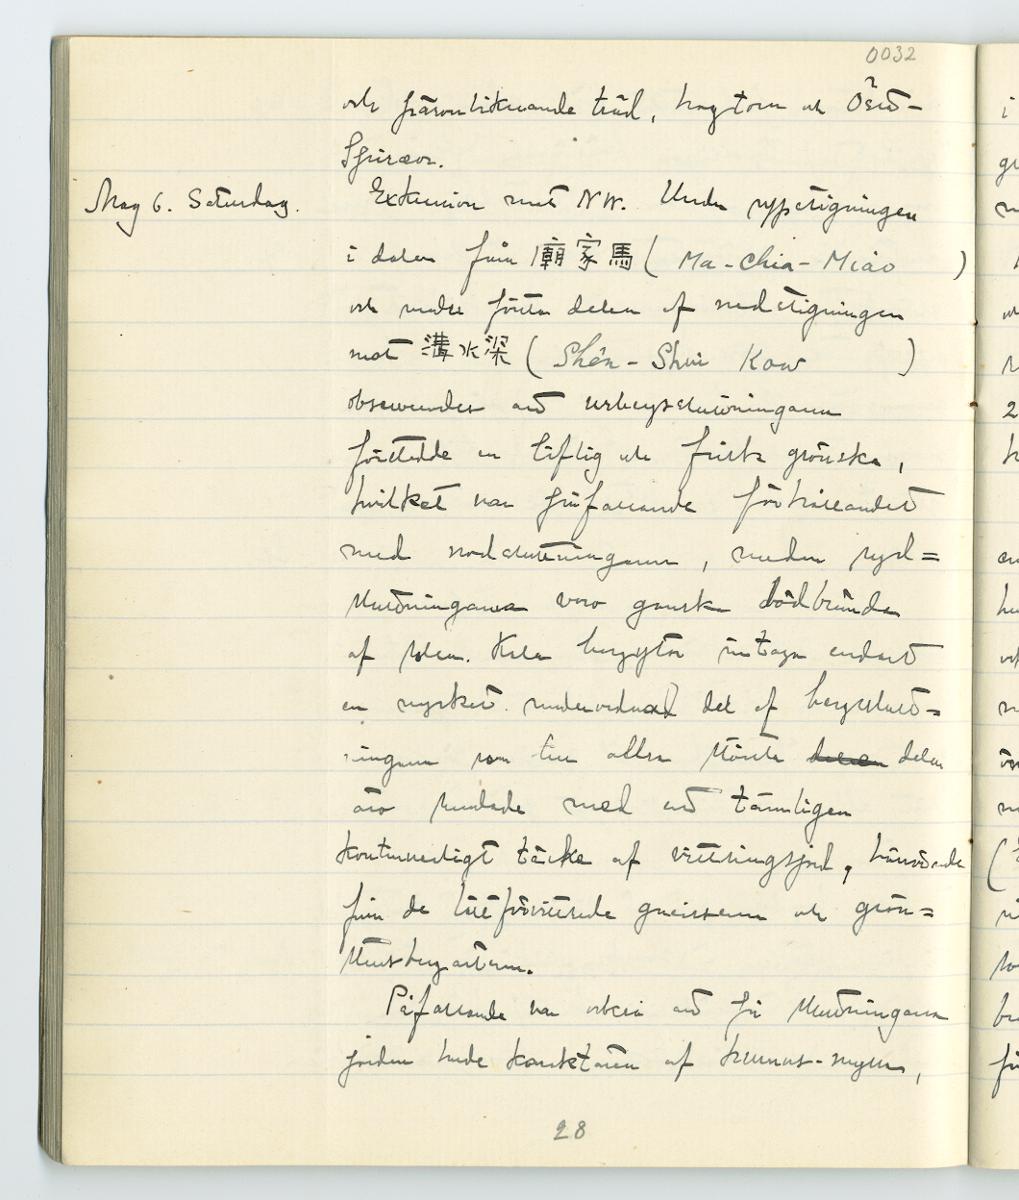 0032
och päronliknande träd, hagtorn och
Spiræor.
May 6. Saturday.
Exkursion mot NW. Under uppstigningen
i dalen från 廟家馬 ( Ma-Chia-Miao )
och under första delen af nedstigningen
mot 溝水深 ( Shên-Shui Kow )
observerades att
företedde en liflig och frisk grönska,
hvilket var förhållandet
med nordsluttningarna, medan syd=
sluttningarna voro ganska dödbrända
af solen. intaga endast
en mycket underordnad del af bergslutt=
ningarna som till allra största delen delen
äro med ett tämligen
kontinuerligt täcke af vittringsjord,
från de lättförvittrade gneisserna och grön=
stensbergarterna.
Påfallande var också att på sluttningarna
jorden hade karaktären af humus-
28